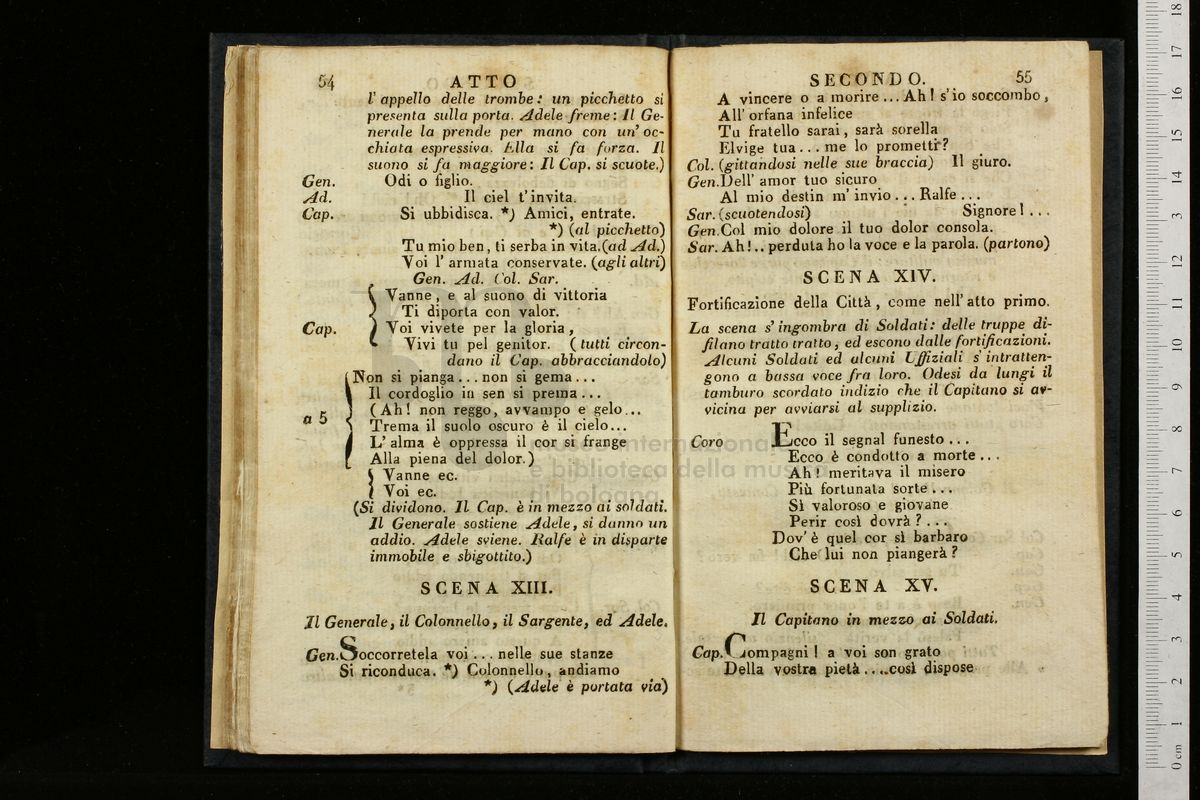 54 ATTO
l'appello delle trombe: un picchetto si
presenta sulla porta. Adele freme: Il Ge-
nerale la prende per mano con un'oc-
chiata espressiva. Ella si fa forza. Il
suono si fa maggiore: Il Cap. si scuote.)
Gen. Odi o figlio.
Ad. Il ciel t'invita.
Cap. Si ubbidisca. *) Amici, entrate.
*) (al picchetto)
Tu mio ben, ti serba in vita. (ad Ad.)
Voi l'armata conservate. (agli altri)
Gen. Ad. Col. Sar.
Vanne, e al suono di vittoria
Ti diporta con valor.
Cap. Voi vivete per la gloria,
Vivi tu pel genitor. (tutti circon-
dano il Cap. abbracciandolo)
Non si pianga... non si gema...
Il cordoglio in sen si prema...
(Ah! non reggo, avvampo e gelo...
a 5 Trema il suolo oscuro è il cielo...
L'alma è oppressa il cor si frange
Alla piena del dolor.)
Vanne ec.
Voi ec.
(Si dividono. Il Cap. è in mezzo ai soldati.
Il Generale sostiene Adele, si danno un
addio. Adele sviene. Ralfe è in disparte
immobile e sbigottito.)
SCENA XIII.
Il Generale, il Colonnello, il Sargente, ed Adele.
Gen. Soccorretela voi... nelle sue stanze
Si riconduca. *) Colonnello, andiamo
*) (Adele è portata via)
SECONDO. 55
A vincere o a morire... Ah! s'io soccombo,
All'orfana infelice
Tu fratello sarai, sarà sorella
Elvige tua... me lo prometti?
Col. (gittandosi nelle sue braccia) Il giuro.
Gen. Dell'amor tuo sicuro
Al mio destin m'invio... Ralfe...
Sar. (scuotendosi) Signore!...
Gen. Col mio dolore il tuo dolor consola.
Sar. Ah!.. perduta ho la voce e la parola. (partono)
SCENA XIV.
Fortificazione della Città, come nell'atto primo.
La scena s'ingombra di Soldati: delle truppe di-
filano tratto tratto, ed escono dalle fortificazioni.
Alcuni Soldati ed alcuni Uffiziali s'intratten-
gono a bassa voce fra loro. Odesi da lungi il
tamburo scordato indizio che il Capitano si av-
vicina per avviarsi al supplizio.
Coro Ecco il segnal funesto...
Ecco è condotto a morte...
Ah! meritava il misero
Più fortunata sorte...
Sì valoroso e giovane
Perir così dovrà?...
Dov'è quel cor sì barbaro
Che lui non piangerà?
SCENA XV.
Il Capitano in mezzo ai Soldati.
Cap. Compagni! a voi son grato
Della vostra pietà....così dispose
internazionale
e biblioteca della musica
di bologna
0 cm 1 2 3 4 5 6 7 8 9 10 11 12 13 14 15 16 17 18